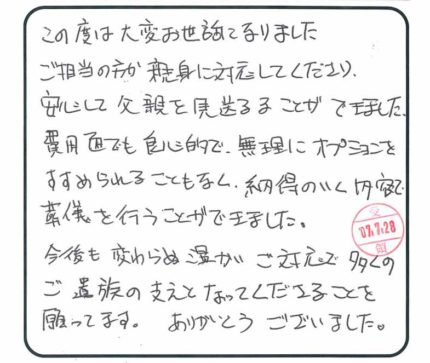 この度は大変お世話になりました
ご担当の方が親身に対応してくださり、
安心して父親を見送ることができました。
費用面でも良心的で、無理にオプションを
すすめられることもなく、納得のいく内容で
葬儀を行うことができました。
07.7.28
今後も変わらぬ温かいご対応で多くの
ご遺族の支えとなってくださることを
願ってます。 ありがとうございました。